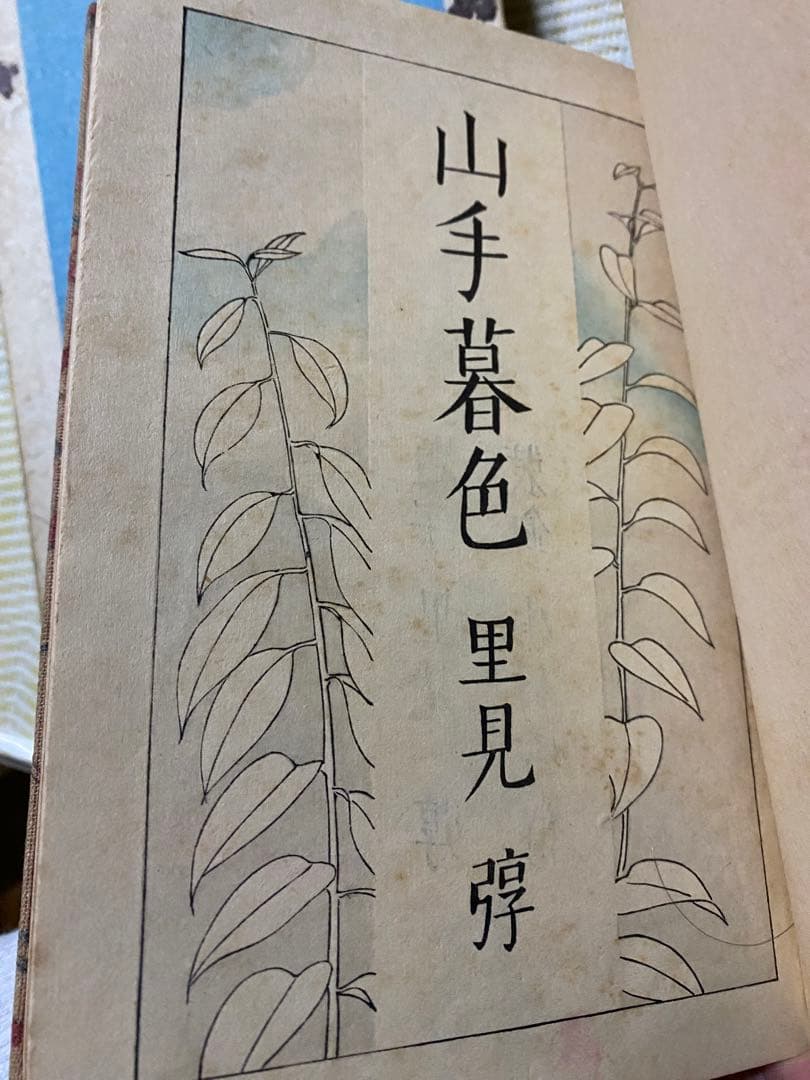 山手暮色 里見 弴